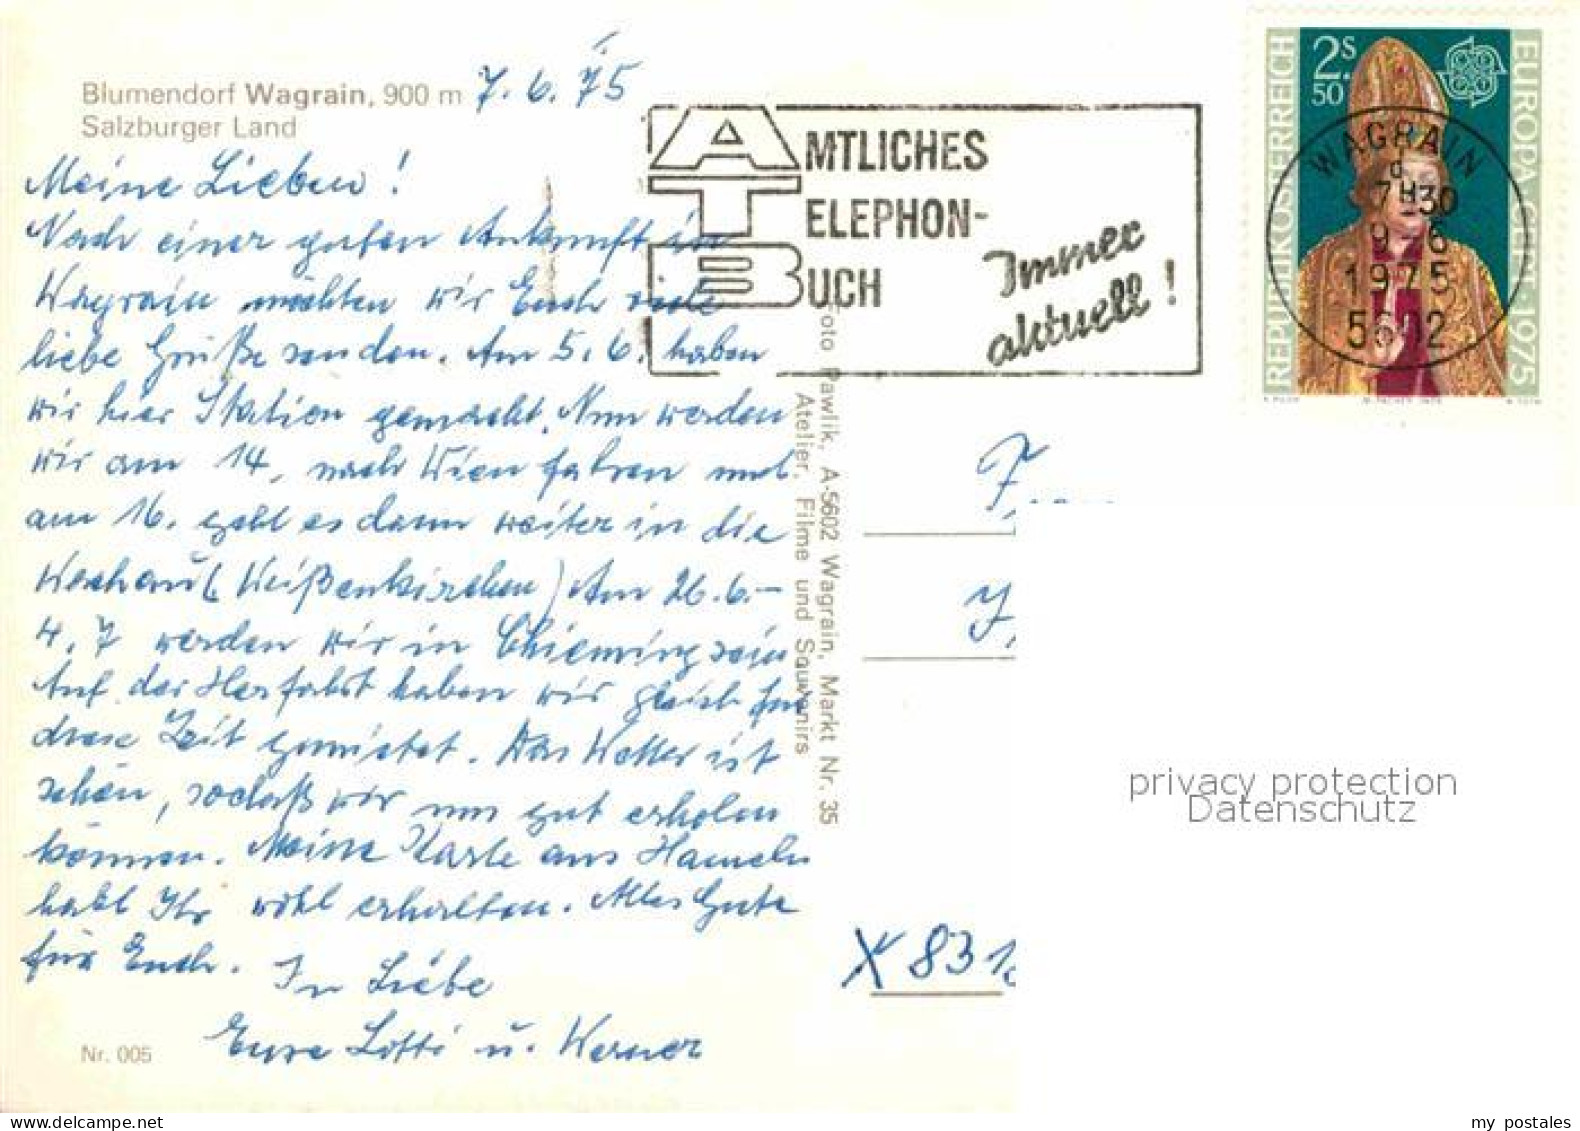 Blumendorf Wagrain, 900 m 7.6.75
Salzburger Land
Meine Lieben!
Nach einer guten Ankunft in
Wagrain möchten wir Euch viele
liebe Grüße senden. Am 5.6. haben
wir hier Station gemacht. Nun werden
wir am 14. nach Wien fahren und
am 16. geht es dann weiter in die
Wachau (Weißenkirchen) Am 26.6.–
4.7 werden wir in Chieming sein
Auf der Herfahrt haben wir gleich für
diese Zeit gemietet. Das Wetter ist
schön, sodaß wir uns gut erholen
können. Meine Karte aus Hameln
habt Ihr wohl erhalten. Alles Gute
für Euch. In Liebe
Eure Lotti u. Werner
Nr. 005
Foto Pawlik, A-5602 Wagrain, Markt Nr. 35
Atelier, Filme und Souvenirs
AMTLICHES
TELEPHON-
BUCH
Immer
aktuell!
REPUBLIK ÖSTERREICH
2S
50
EUROPA-CEPT-1975
WAGRAIN
d
7H30
9. 6
1975
5612
X 831
privacy protection
Datenschutz
my postales